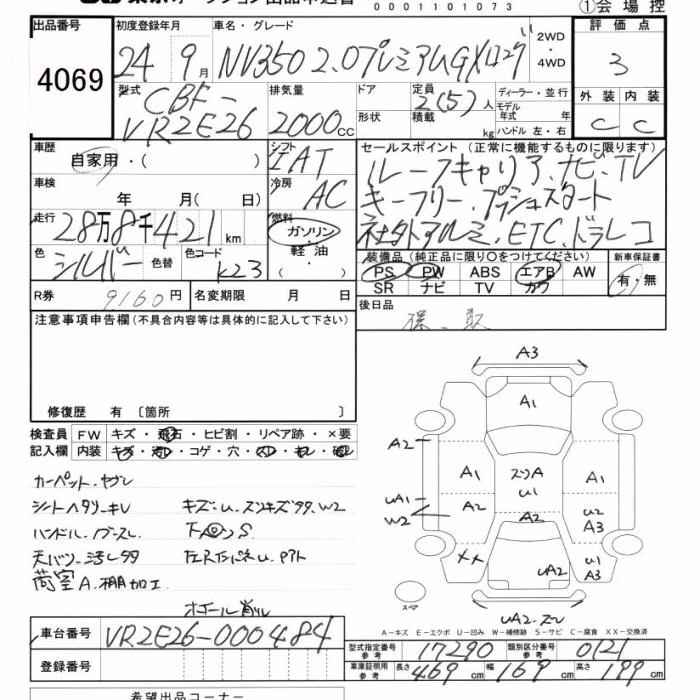 0001101073
①会場控
出品番号 4069
初度登録年月 24年 9月
車名・グレード NV350 2.0プレミアムGXロング
2WD・4WD
評価点 3
外装 C 内装 C
型式 CBF-VR2E26
排気量 2000cc
ドア 形状
定員 2(5)人
積載 kg
ディーラー・並行
モデル年式 年
ハンドル 左・右
車歴 自家用・( )
シフト IAT
冷房 AC
車検 年 月( 日)
走行 28万8千421km
燃料 ガソリン・軽油・( )
色 シルバー 色替
色コード K23
R券 9160円
名変期限 月 日
セールスポイント(正常に機能するものに限ります)
ルーフキャリア、ナビ、TV
キーフリー、プッシュスタート
社外アルミ、ETC、ドラレコ
装備品(純正品に限り○をつけてください)
PS PW ABS エアB AW
SR ナビ TV カワ
新車保証書 有・無
後日品
注意事項申告欄(不具合内容等は具体的に記入して下さい)
修復歴 有 [箇所 ]
検査員記入欄
FW キズ・飛石・ヒビ割・リペア跡・×要
内装 キズ・汚れ・コゲ・穴・スレ・モレ・破レ
カーペット、ヤブレ
シートヘタリ・キレ
キズ・U、スンキズ99、W2
下回りS
荷室A、棚加工
A3
A1
A2
A1
スリA
U1
A1
UA1
W2
A2
A2
U2
A3
XX
UA2
U1
A3
スペア
A-キズ E-エクボ U-凹み W-補修跡 S-サビ C-腐食 XX-交換済
車台番号 VR2E26-000484
登録番号
型式指定番号参考 17290
類別区分番号参考 0121
車庫証明用参考 長さ 469cm 幅 169cm 高さ 199cm
希望出品コーナー